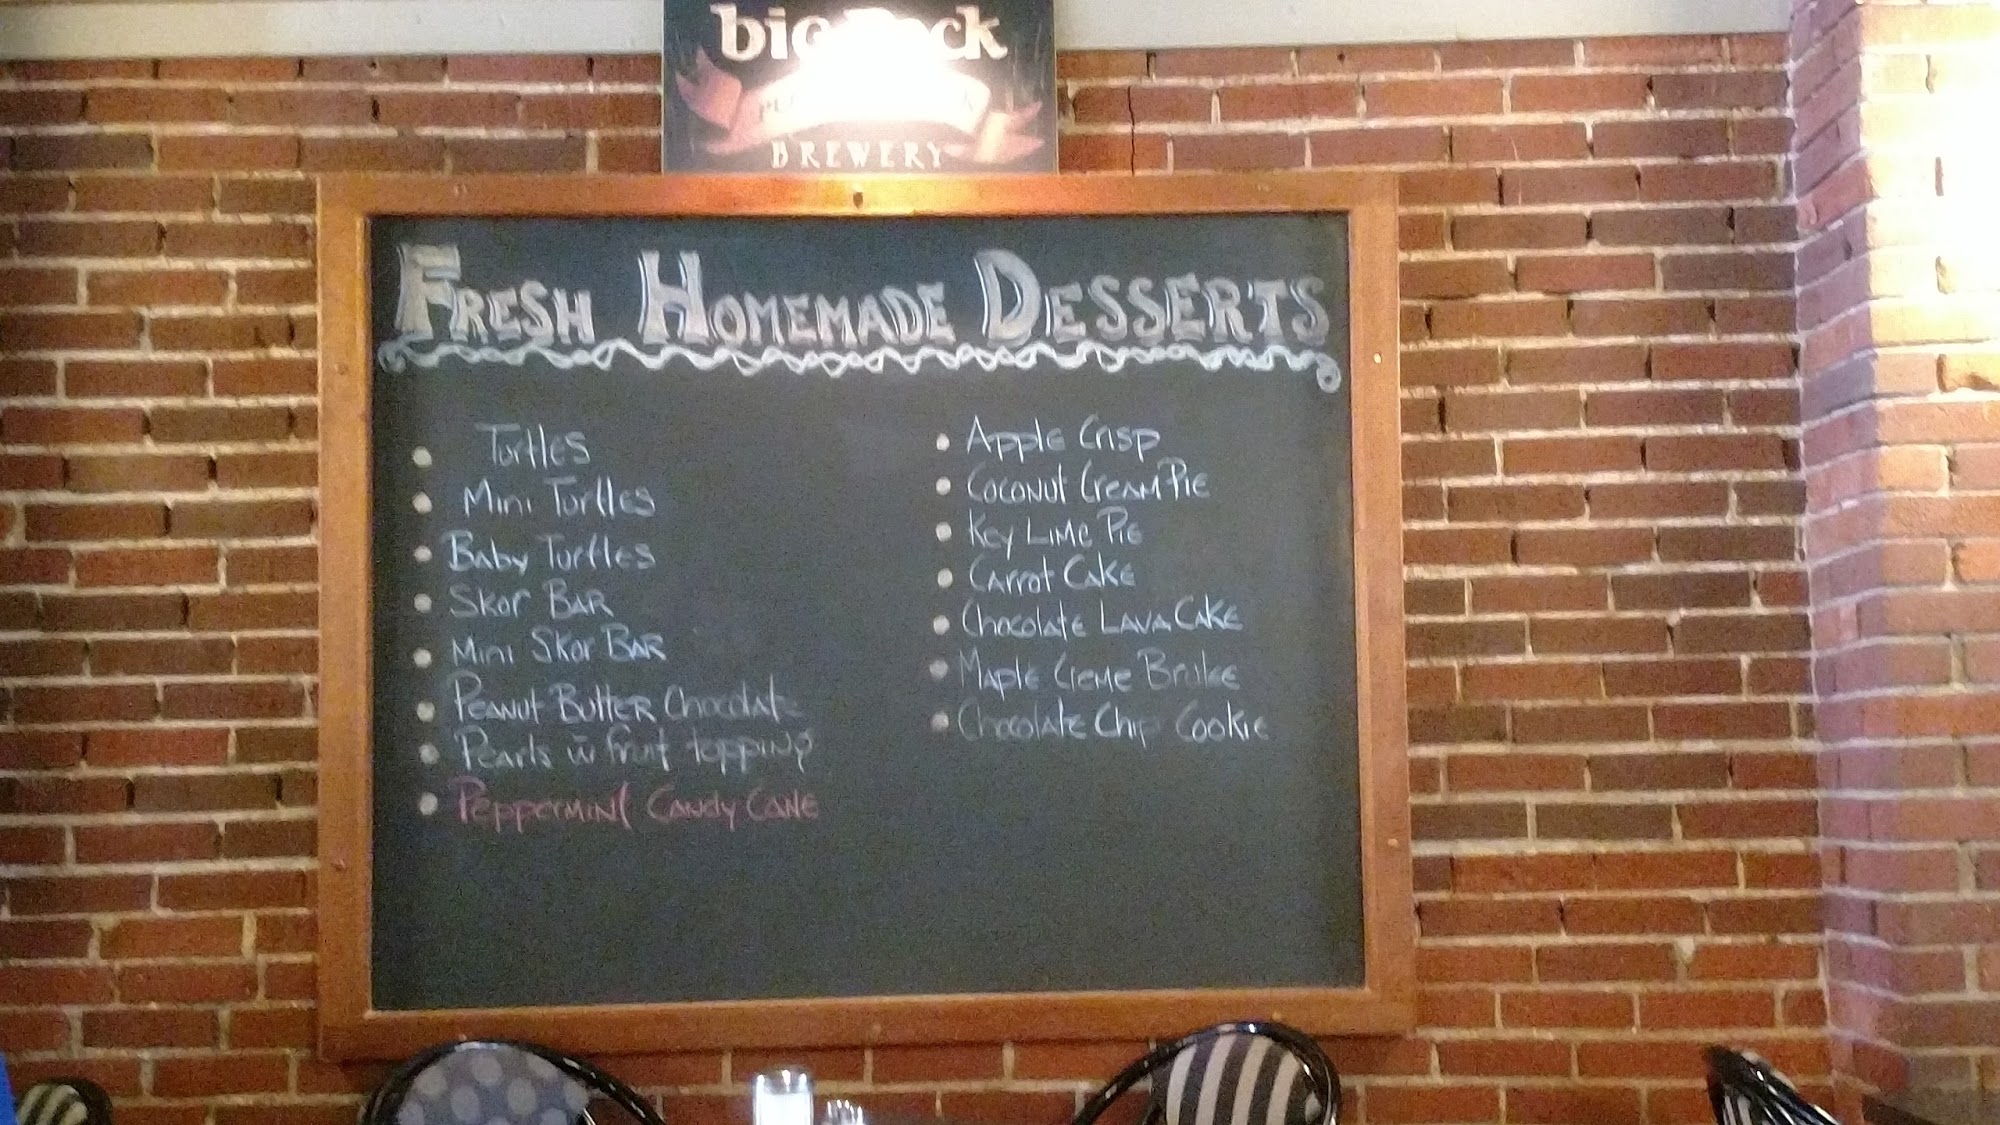 big Rock
BREWERY
FRESH HOMEMADE DESSERTS
Turtles
Mini Turtles
Baby Turtles
Skor BAR
Mini Skor BAR
Peanut Butter Chocolate
Pearls w fruit topping
Peppermint Candy Cane
Apple Crisp
Coconut Cream Pie
Key Lime Pie
Carrot Cake
Chocolate Lava Cake
Maple Creme Brulee
Chocolate Chip Cookie